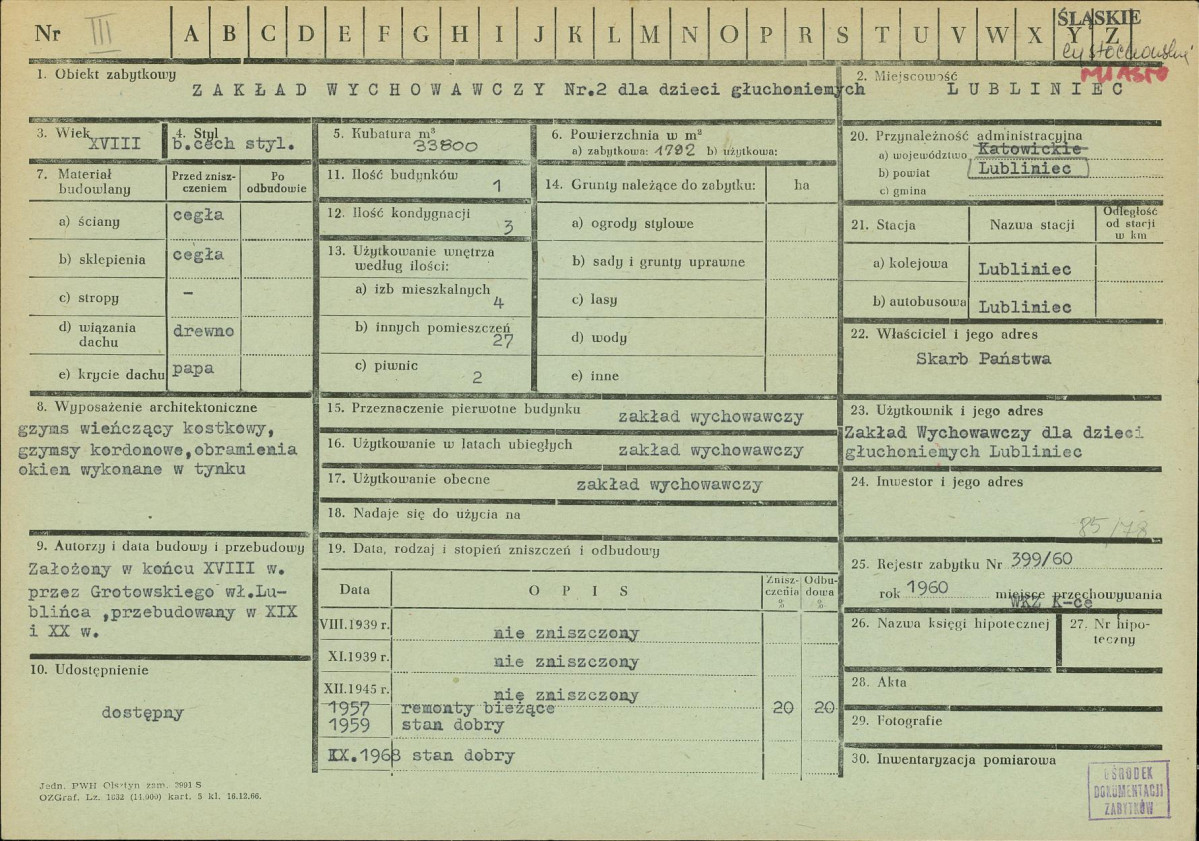 Nr III A B C D E F G H I J K L M N O P R S T U V W X Y Z
ŚLĄSKIE
MIASTO
1. Obiekt zabytkowy
ZAKŁAD WYCHOWAWCZY Nr.2 dla dzieci głuchoniemych
2. Miejscowość
LUBLINIEC
3. Wiek
XVIII
4. Styl
b.cech styl.
5. Kubatura m³
33800
6. Powierzchnia w m²
a) zabytkowa: 1792 b) użytkowa:
7. Materiał budowlany
Przed zniszczeniem
Po odbudowie
a) ściany cegła
b) sklepienia cegła
c) stropy –
d) wiązania dachu drewno
e) krycie dachu papa
8. Wyposażenie architektoniczne
gzyms wieńczący kostkowy,
gzymsy kordonowe,obramienia
okien wykonane w tynku
9. Autorzy i data budowy i przebudowy
Założony w końcu XVIII w.
przez Grotowskiego wł.Lu-
blińca ,przebudowany w XIX
i XX w.
10. Udostępnienie
dostępny
11. Ilość budynków
1
12. Ilość kondygnacji
3
13. Użytkowanie wnętrza
według ilości:
a) izb mieszkalnych
4
b) innych pomieszczeń
27
c) piwnic
2
14. Grunty należące do zabytku: ha
a) ogrody stylowe
b) sady i grunty uprawne
c) lasy
d) wody
e) inne
15. Przeznaczenie pierwotne budynku zakład wychowawczy
16. Użytkowanie w latach ubiegłych zakład wychowawczy
17. Użytkowanie obecne zakład wychowawczy
18. Nadaje się do użycia na
19. Data, rodzaj i stopień zniszczeń i odbudowy
Data OPIS Zniszczenia % Odbudowa %
VIII.1939 r. nie zniszczony
XI.1939 r. nie zniszczony
XII.1945 r. nie zniszczony
1957 remonty bieżące 20 20
1959 stan dobry
IX.1968 stan dobry
20. Przynależność administracyjna
a) województwo Katowickie
b) powiat Lubliniec
c) gmina
21. Stacja Nazwa stacji Odległość od stacji w km
a) kolejowa Lubliniec
b) autobusowa Lubliniec
22. Właściciel i jego adres
Skarb Państwa
23. Użytkownik i jego adres
Zakład Wychowawczy dla dzieci
głuchoniemych Lubliniec
24. Inwestor i jego adres
85/78
25. Rejestr zabytku Nr 399/60
rok 1960 miejsce przechowywania
WKZ K-ce
26. Nazwa księgi hipotecznej
27. Nr hipo-
teczny
28. Akta
29. Fotografie
30. Inwentaryzacja pomiarowa
OŚRODEK
DOKUMENTACJI
ZABYTKÓW
Jedn. PWH Olsztyn zam. 2991 S
OZGraf. Lz. 1032 (14.000) kart. 5 kl. 16.12.66.